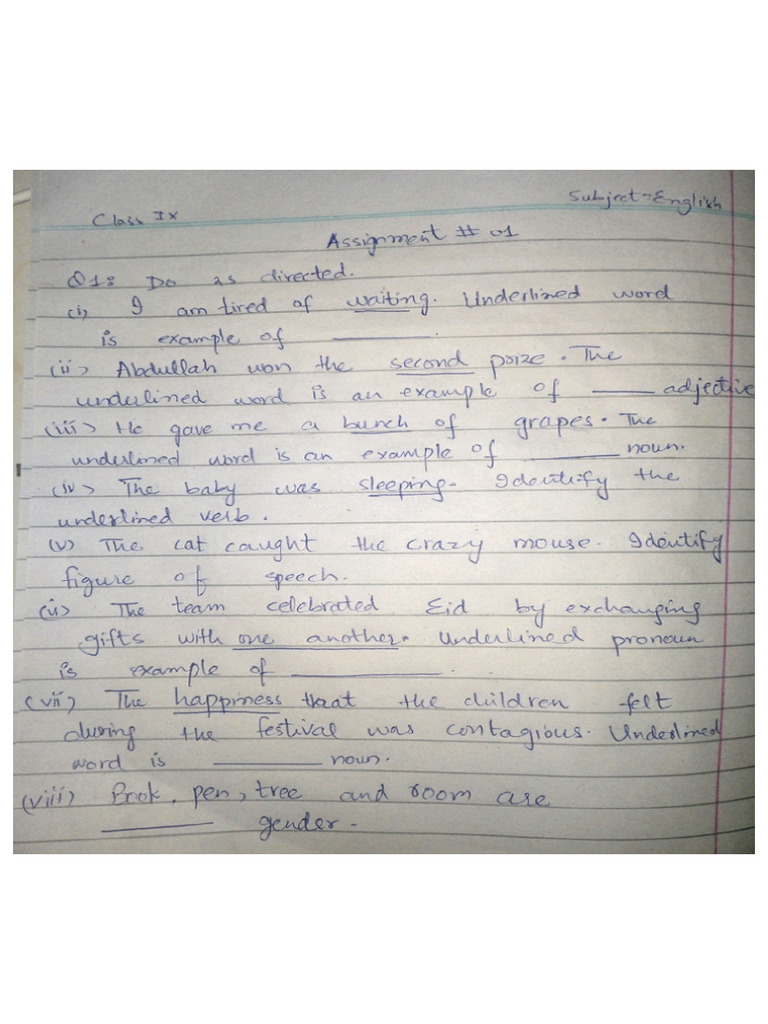 Class IX Subject→English
Assignment # 01
Q1: Do as directed.
(i) I am tired of waiting. Underlined word
is example of ________.
(ii) Abdullah won the second prize. The
underlined word is an example of ______ adjective
(iii) He gave me a bunch of grapes. The
underlined word is an example of ________ noun.
(iv) The baby was sleeping. Identify the
underlined verb.
(v) The cat caught the crazy mouse. Identify
figure of speech.
(vi) The team celebrated Eid by exchanging
gifts with one another. Underlined pronoun
is example of ______________.
(vii) The happiness that the children felt
during the festival was contagious. Underlined
word is __________ noun.
(viii) Book, pen, tree and room are
__________ gender.